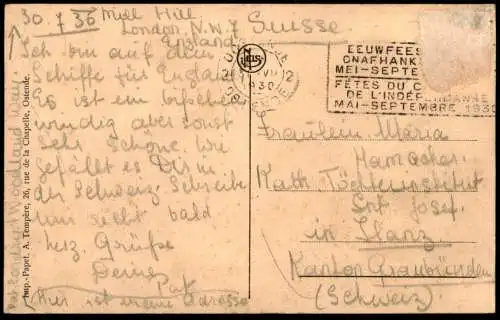 30.7 30 Mill Hill
London. N.W. 7 Suisse
England
Ich bin auf dem
Schiffe für England
Es ist ein bischen
windig aber sonst
sehr schöne. Wie
gefällt es Dir in
der Schweiz. Schreibe
mir bald
herz. Grüße
Deine
Pat
(Hier ist meine Adresse
Woodland
Imp.-Papet. A. Tempère, 26, rue de la Chapelle, Ostende.
NELS
OOSTENDE
VII 12
1930
EEUWFEES
ONAFHANK
MEI-SEPTE
FÊTES DU C
DE L'INDÉPENDANCE
MAI-SEPTEMBRE 193
Fräulein Maria
Hamacher
Kath Töchterinstitut
Snt Josef.
in Ilanz.
Kanton Graubünden
(Schweiz)